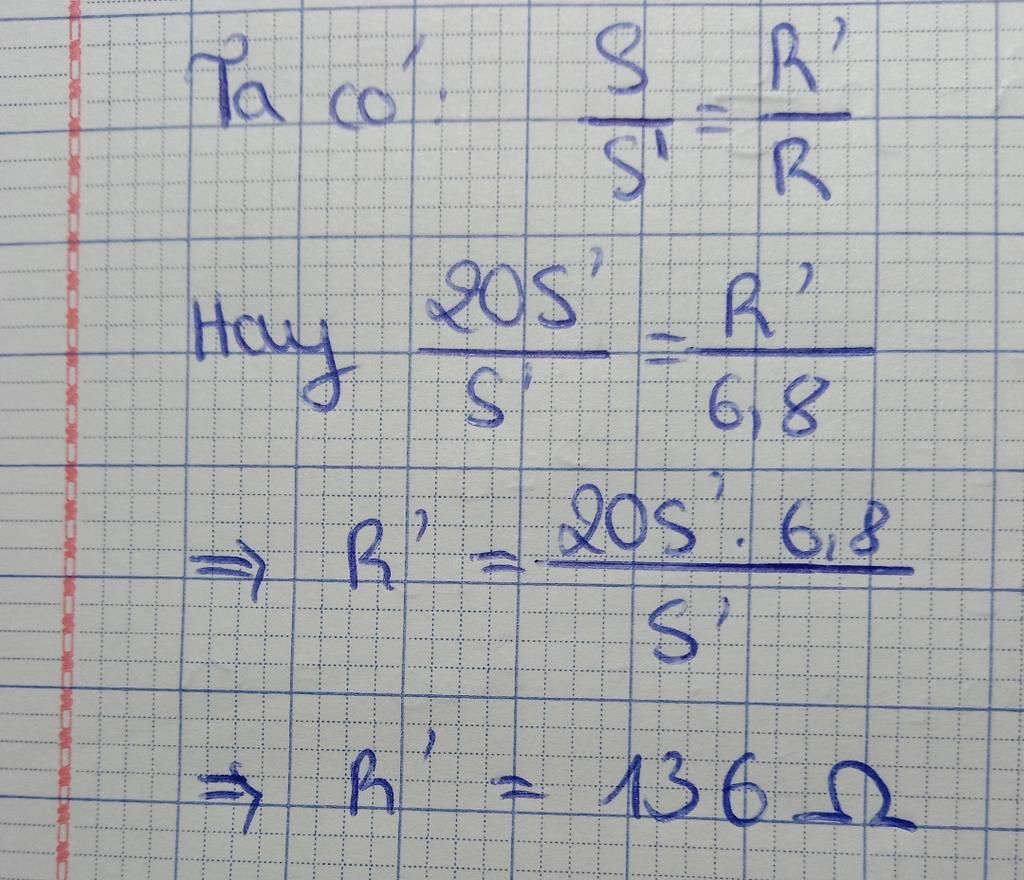 Ta có: S/S' = R'/R
Hay 20S'/S' = R'/6,8
⇒ R' = 20S' . 6,8/S'
⇒ R' = 136 Ω